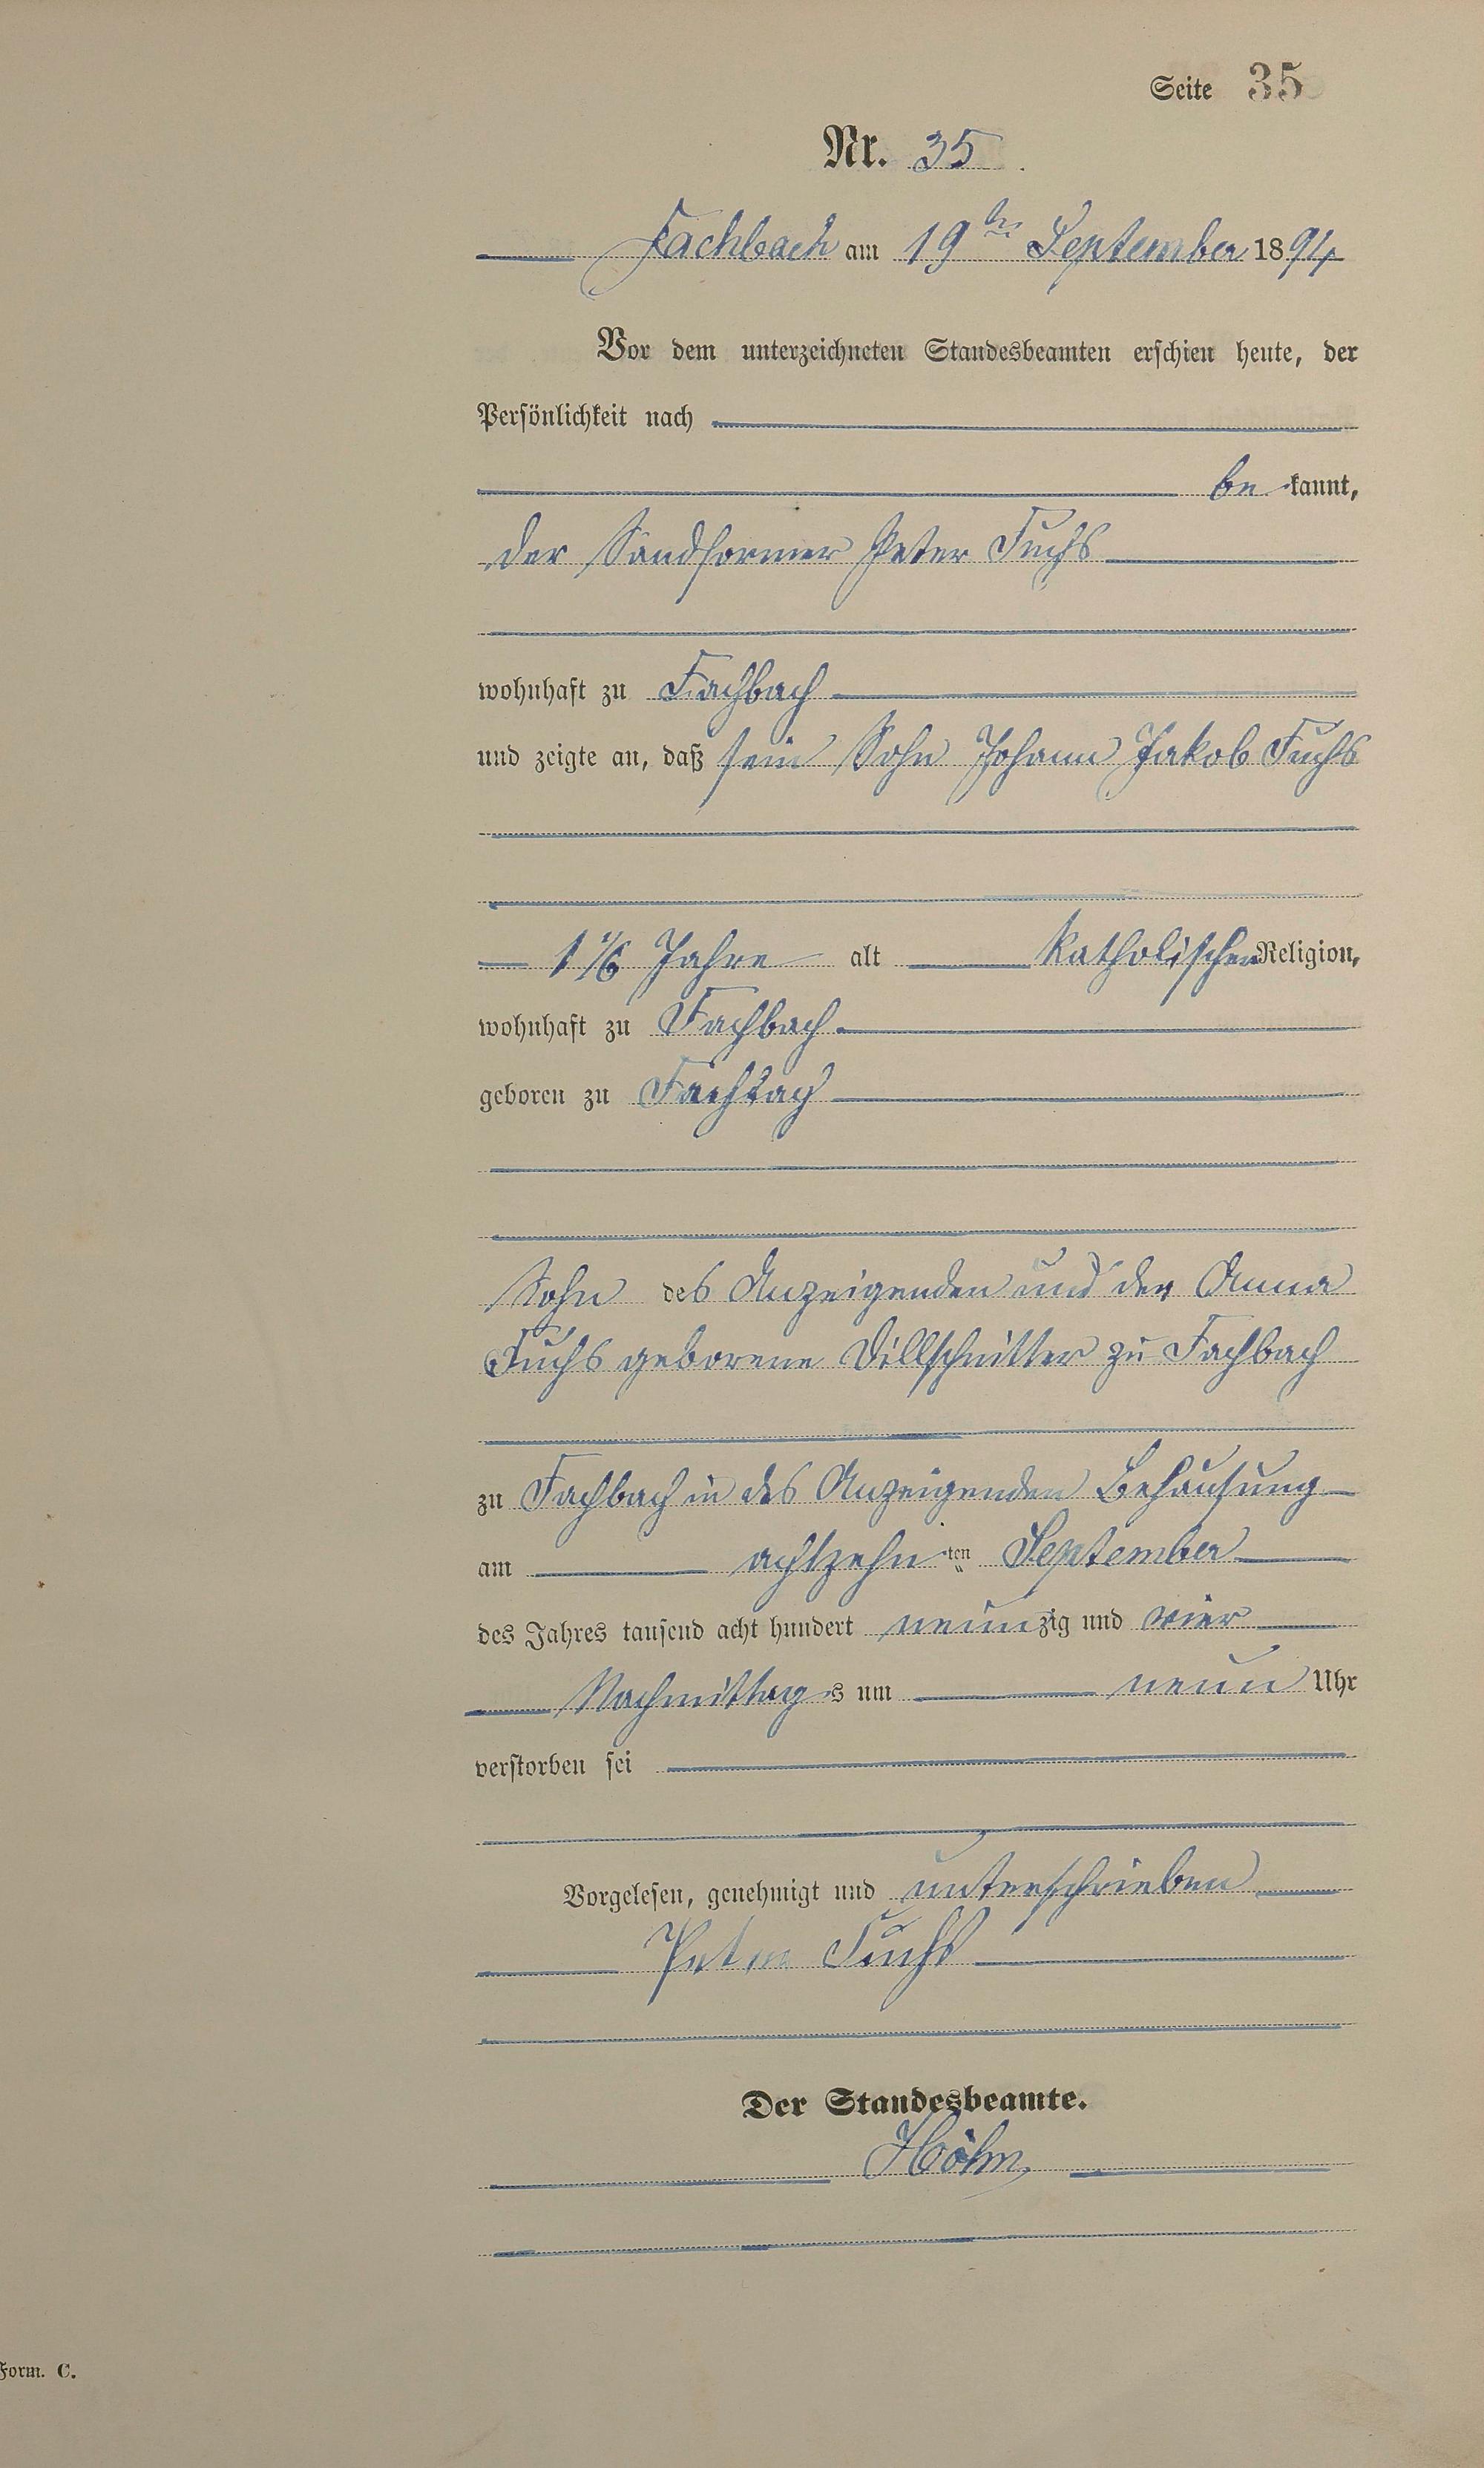 Seite 35
Nr. 35.
Fachbach am 19ten September 1894
Vor dem unterzeichneten Standesbeamten erschien heute, der
Persönlichkeit nach
be kannt,
der Sandformer Peter Fuchs
wohnhaft zu Fachbach
und zeigte an, daß sein Sohn Johann Jakob Fuchs
1 1/6 Jahre alt katholischer Religion,
wohnhaft zu Fachbach
geboren zu Fachbach
Sohn des Anzeigenden und der Anna
Fuchs geborene Dillschnitter zu Fachbach
zu Fachbach in des Anzeigenden Behausung
am achtzehn ten September
des Jahres tausend acht hundert neunzig und vier
Nachmittags um neun Uhr
verstorben sei
Vorgelesen, genehmigt und unterschrieben
Peter Fuchs
Der Standesbeamte.
Höhn
Form. C.